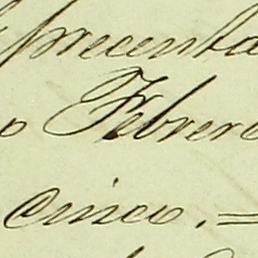 presenta
o Febrero
cinco. =